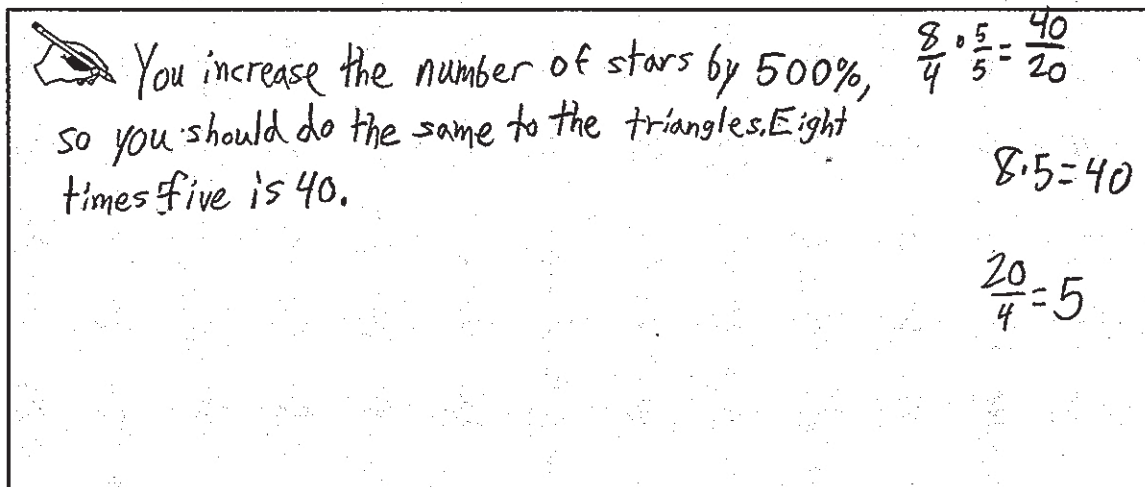 You increase the number of stars by 500%,
so you should do the same to the triangles. Eight
times five is 40.
8/4 · 5/5 = 40/20
8·5=40
20/4 = 5